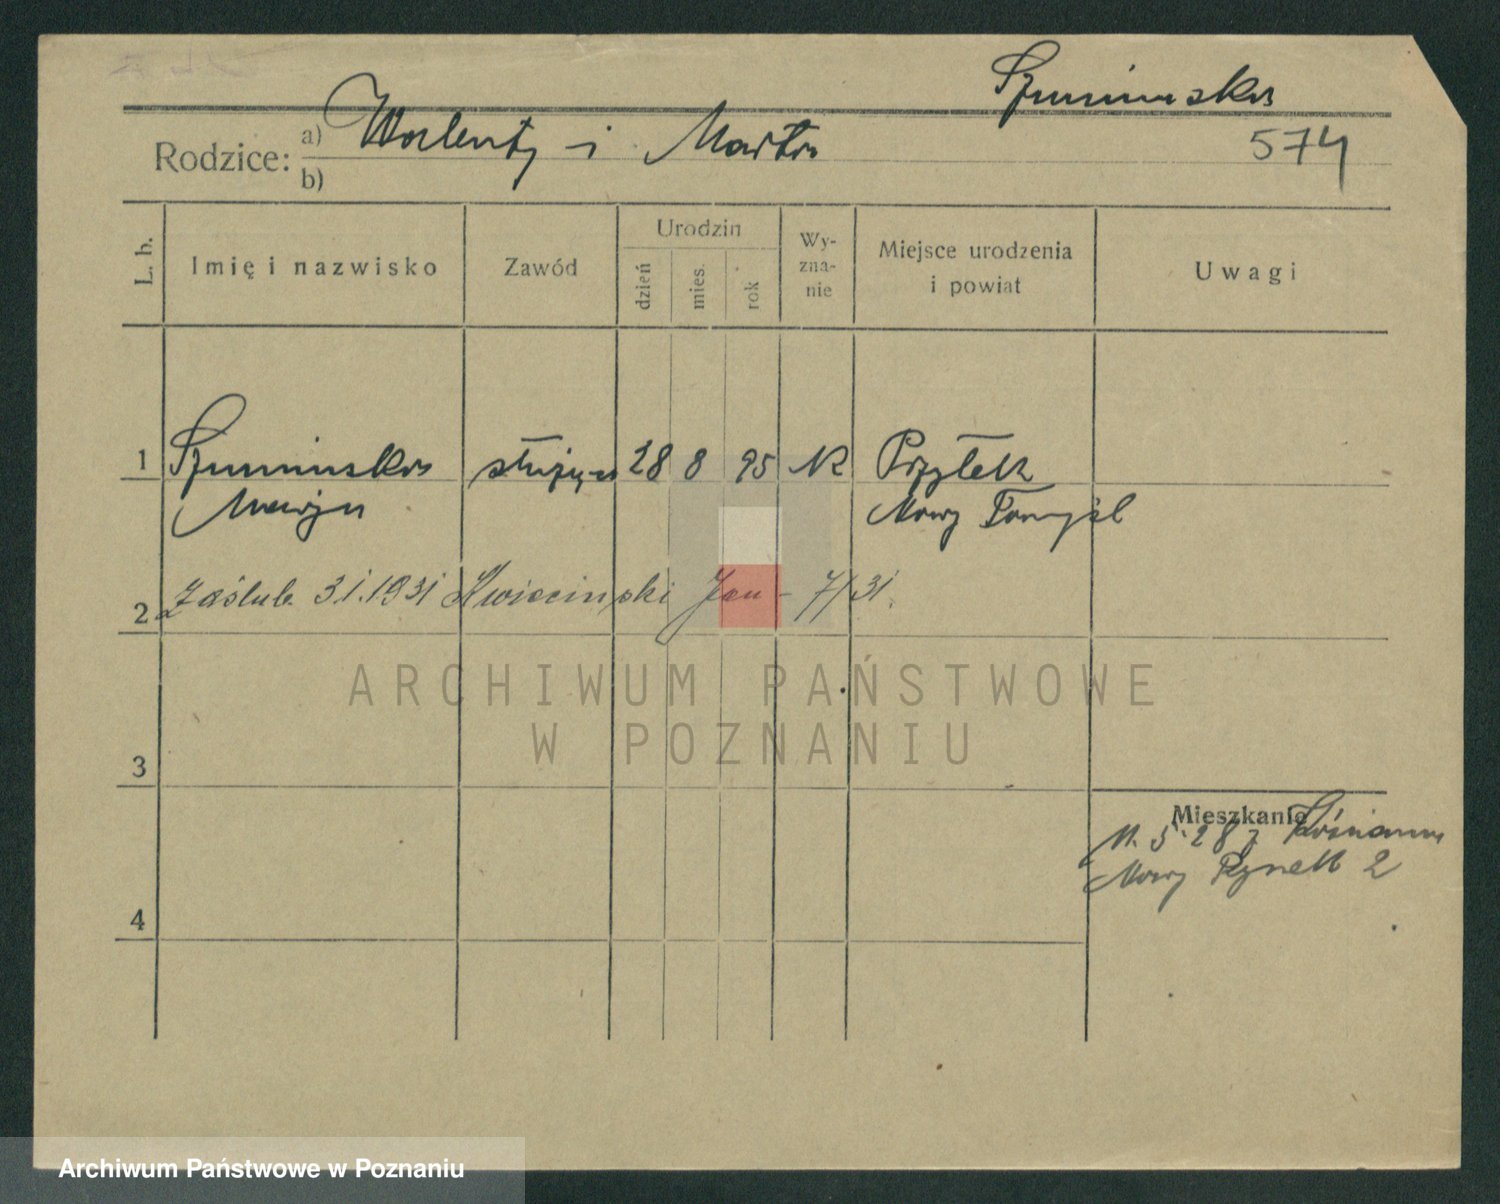 Szumińska
574
Rodzice: a) Walenty i Marta
b)
L. b.
Imię i nazwisko
Zawód
Urodzin
dzień
mies.
rok
Wy-
zna-
nie
Miejsce urodzenia
i powiat
Uwagi
1 Szumińska służąca 28 8 95 Przyłęk
Maryja Nowy Tomyśl
2 Zaślub. 3.1.1931 Kwieciński Jan - 7/31.
3
Mieszkanie
11. 5. 28 z
Nowy Rynek 2
4
ARCHIWUM PAŃSTWOWE
W POZNANIU
Archiwum Państwowe w Poznaniu